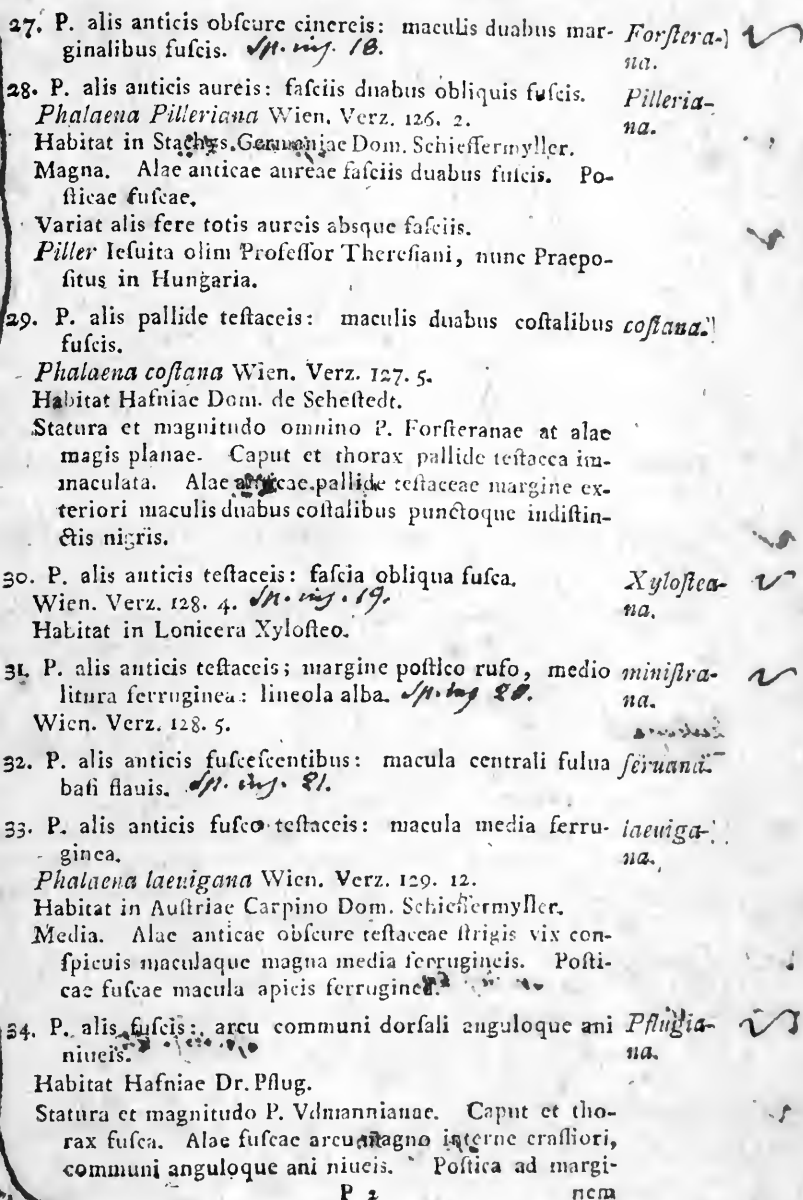 27. P. alis anticis obſcure cinereis: maculis duabus mar- Forſtera-
ginalibus fuſcis. Sp. inſ. 18. na.
28. P. alis anticis aureis: faſciis duabus obliquis fuſcis. Pilleria-
Phalaena Pilleriana Wien. Verz. 126. 2. na.
Habitat in Stachys Germaniae Dom. Schieffermyller.
Magna. Alae anticae aureae faſciis duabus fuſcis. Po-
ſticae fuſcae.
Variat alis fere totis aureis absque faſciis.
Piller Ieſuita olim Profeſſor Thereſiani, nunc Praepo-
ſitus in Hungaria.
29. P. alis pallide teſtaceis: maculis duabus coſtalibus coſtana.
fuſcis.
Phalaena coſtana Wien. Verz. 127. 5.
Habitat Hafniae Dom. de Seheſtedt.
Statura et magnitudo omnino P. Forſteranae at alae
magis planae. Caput et thorax pallide teſtacea im-
maculata. Alae anticae pallide teſtaceae margine ex-
teriori maculis duabus coſtalibus punctoque indiſtin-
ctis nigris.
30. P. alis anticis teſtaceis: faſcia obliqua fuſca. Xyloſtea-
Wien. Verz. 128. 4. Sp. inſ. 19. na.
Habitat in Lonicera Xyloſteo.
31. P. alis anticis teſtaceis; margine poſtico rufo, medio miniſtra-
litura ferruginea: lineola alba. Sp. inſ 20. na.
Wien. Verz. 128. 5.
32. P. alis anticis fuſceſcentibus: macula centrali fulua feruana.
baſi flauis. Sp. inſ. 21.
33. P. alis anticis fuſco teſtaceis: macula media ferru- laeuiga-
ginea. na.
Phalaena laeuigana Wien. Verz. 129. 12.
Habitat in Auſtriae Carpino Dom. Schieffermyller.
Media. Alae anticae obſcure teſtaceae ſtrigis vix con-
ſpicuis maculaque magna media ferrugineis. Poſti-
cae fuſcae macula apicis ferruginea.
34. P. alis fuſcis: arcu communi dorſali anguloque ani Pflugia-
niueis. na.
Habitat Hafniae Dr. Pflug.
Statura et magnitudo P. Vdmannianae. Caput et tho-
rax fuſca. Alae fuſcae arcu magno interne craſſiori,
communi anguloque ani niueis. Poſtica ad margi-
P 2 nem